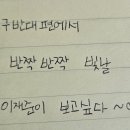 구 반대편에서
반짝 반짝 빛날
이재준이 보고싶다 ~